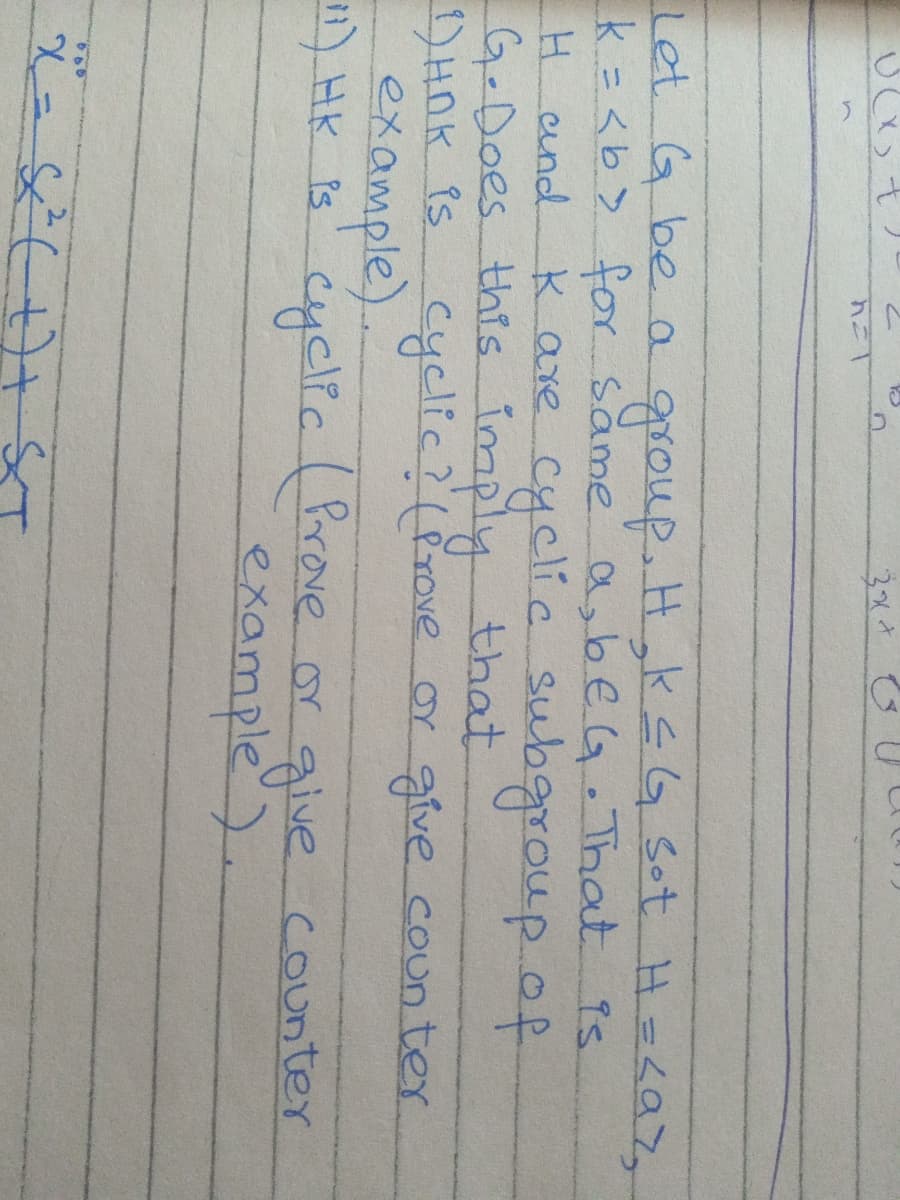 U(x,t)
n=1
Let G be a group, H, k ≤ G s.t H = <a>,
k = <b> for same a, b ∈ G. That is
H and K are cyclic subgroup of
G. Does this imply that
i) H∩K is cyclic? (Prove or give counter
example).
ii) HK is cyclic (Prove or give counter
example).